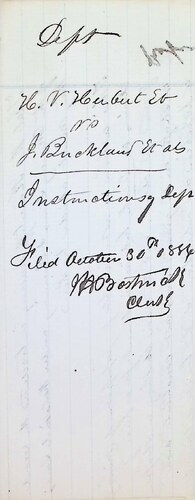 Dept
H. V. Herbert Et
vs
J. Buckland Et als
Instructions Dep
Filed October 30th 1886
Bostwick
Clerk